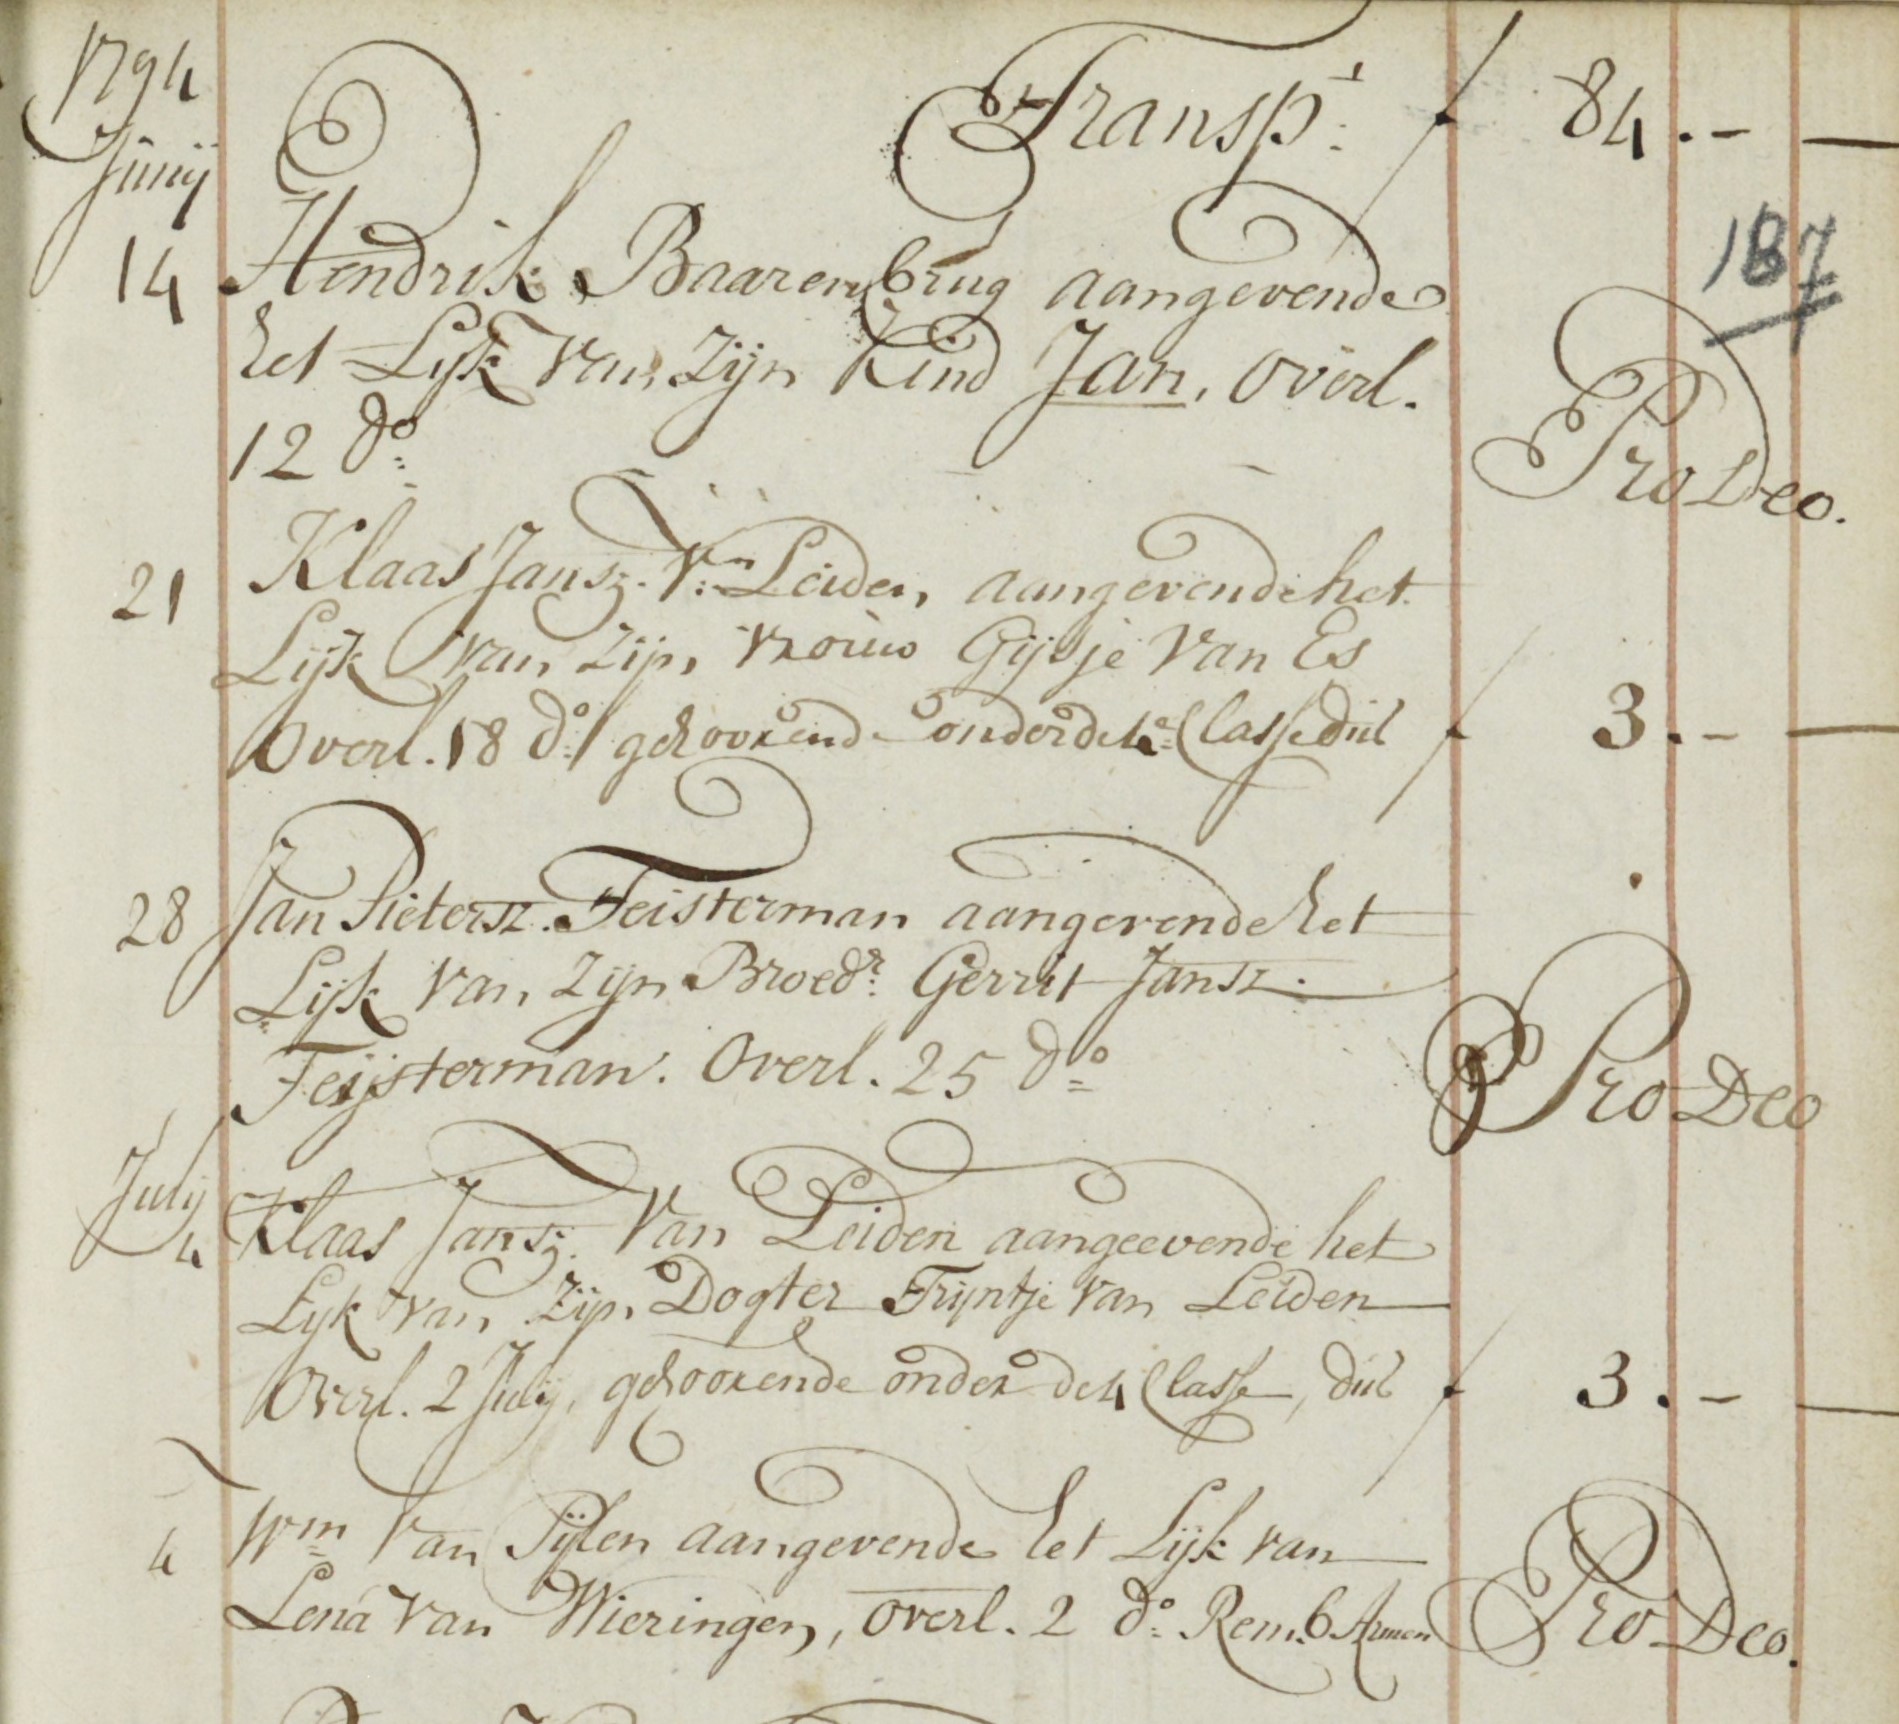 1794 Transp.t f 84 . - —
Junij
187
14 Hendrik Baarenbrug aangevende
het Lijk van Zijn Kind Jan, Overl.
12 do. Pro Deo.
21 Klaas Jansz. V.n Leiden, aangevende het
Lijk van Zijn Vrouw Gijsje Van Es
Overl. 18 do. gehoorende onder de 4e Classe dus f 3 . - —
28 Jan Pietersz. Feisterman aangevende het
Lijk van Zijn Broedr. Gerrit Jansz.
Feijsterman. Overl. 25 do. Pro Deo
July
4 Klaas Jansz. Van Leiden aangeevende het
Lyk van Zijn Dogter Trijntje van Leiden
Overl. 2 July, gehoorende onder de 4 Classe, dus f 3 . - —
4 Wm Van Pijlen aangevende het Lijk van
Lena van Wieringen, overl. 2 do. Rem. Armen Pro Deo.